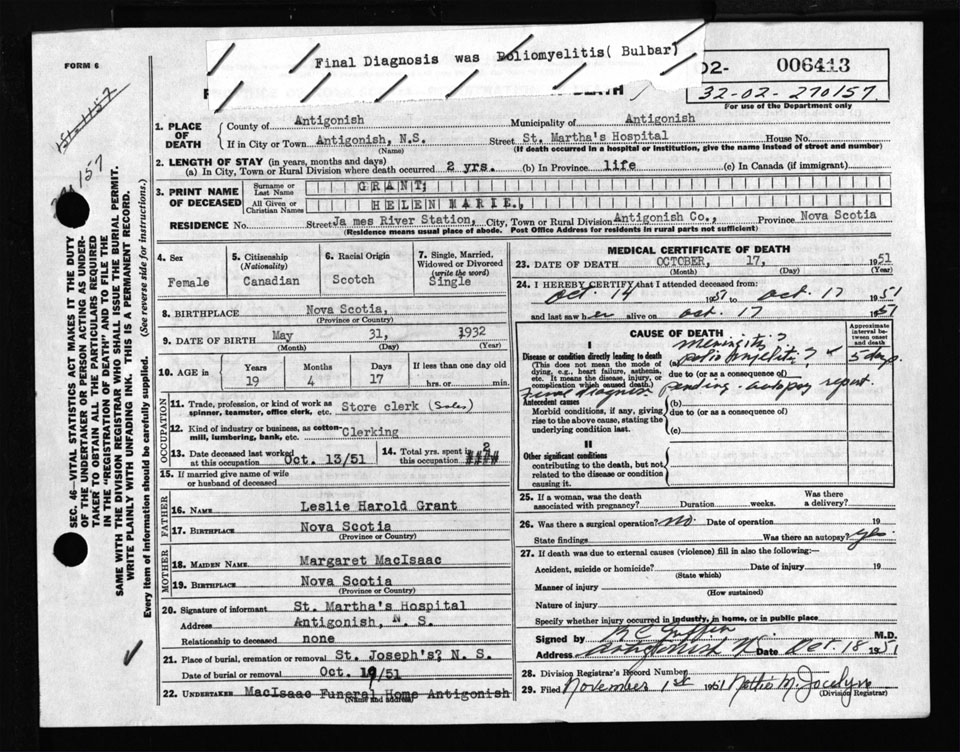 Final Diagnosis was Poliomyelitis( Bulbar)
FORM 6
02- 006413
32-02-270157
For use of the Department only
157
1. PLACE OF DEATH
County of Antigonish Municipality of Antigonish
If in City or Town Antigonish, N.S. Street St. Martha's Hospital House No.
(Name) (If death occurred in a hospital or institution, give the name instead of street and number)
2. LENGTH OF STAY (in years, months and days)
(a) In City, Town or Rural Division where death occurred 2 yrs. (b) In Province life (c) In Canada (if immigrant)
3. PRINT NAME OF DECEASED
Surname or Last Name GRANT,
All Given or Christian Names HELEN MARIE,
RESIDENCE No. Street Ja mes River Station, City, Town or Rural Division Antigonish Co., Province Nova Scotia
(Residence means usual place of abode. Post Office Address for residents in rural parts not sufficient)
4. Sex Female
5. Citizenship (Nationality) Canadian
6. Racial Origin Scotch
7. Single, Married, Widowed or Divorced (write the word) Single
8. BIRTHPLACE Nova Scotia,
(Province or Country)
9. DATE OF BIRTH May 31, 1932
(Month) (Day) (Year)
10. AGE in Years 19 Months 4 Days 17 If less than one day old hrs. or min.
OCCUPATION
11. Trade, profession, or kind of work as spinner, teamster, office clerk, etc. Store clerk (Sales)
12. Kind of industry or business, as cotton-mill, lumbering, bank, etc. Clerking
13. Date deceased last worked at this occupation Oct. 13/51
14. Total yrs. spent in this occupation 2
15. If married give name of wife or husband of deceased
FATHER
16. Name Leslie Harold Grant
17. Birthplace Nova Scotia
(Province or Country)
MOTHER
18. Maiden Name Margaret MacIsaac
19. Birthplace Nova Scotia
(Province or Country)
20. Signature of informant St. Martha's Hospital
Address Antigonish, N. S.
Relationship to deceased none
21. Place of burial, cremation or removal St. Joseph's, N. S.
Date of burial or removal Oct. 19/51
22. UNDERTAKER MacIsaac Funeral Home Antigonish
(Name and address)
MEDICAL CERTIFICATE OF DEATH
23. DATE OF DEATH OCTOBER, 17, 1951
(Month) (Day) (Year)
24. I HEREBY CERTIFY that I attended deceased from:
Oct. 14 1951 to Oct. 17 1951
and last saw her alive on Oct. 17 1951
CAUSE OF DEATH
Approximate interval between onset and death
I
Disease or condition directly leading to death
(This does not mean the mode of dying, e.g., heart failure, asthenia, etc. It means the disease, injury, or complication which caused death.)
(a) Meningitis ?
Poliomyelitis ? 5 days
due to (or as a consequence of)
Final diagnosis pending autopsy report.
Antecedent causes
Morbid conditions, if any, giving rise to the above cause, stating the underlying condition last.
(b)
due to (or as a consequence of)
(c)
II
Other significant conditions
contributing to the death, but not related to the disease or condition causing it.
25. If a woman, was the death associated with pregnancy? Duration weeks. Was there a delivery?
26. Was there a surgical operation? No. Date of operation 19
State findings Was there an autopsy? yes
27. If death was due to external causes (violence) fill in also the following:—
Accident, suicide or homicide? Date of injury 19
(State which)
Manner of injury
(How sustained)
Nature of injury
Specify whether injury occurred in industry, in home, or in public place
Signed by M.D.
Address Antigonish Date Oct. 18 1951
28. Division Registrar's Record Number
29. Filed November 1st 1951 Nettie M. Jocelyn
(Division Registrar)
SEC. 46—VITAL STATISTICS ACT MAKES IT THE DUTY
OF THE UNDERTAKER OR PERSON ACTING AS UNDER-
TAKER TO OBTAIN ALL THE PARTICULARS REQUIRED
IN THE "REGISTRATION OF DEATH" AND TO FILE THE
SAME WITH THE DIVISION REGISTRAR WHO SHALL ISSUE THE BURIAL PERMIT.
WRITE PLAINLY WITH UNFADING INK. THIS IS A PERMANENT RECORD.
Every item of information should be carefully supplied. (See reverse side for instructions.)